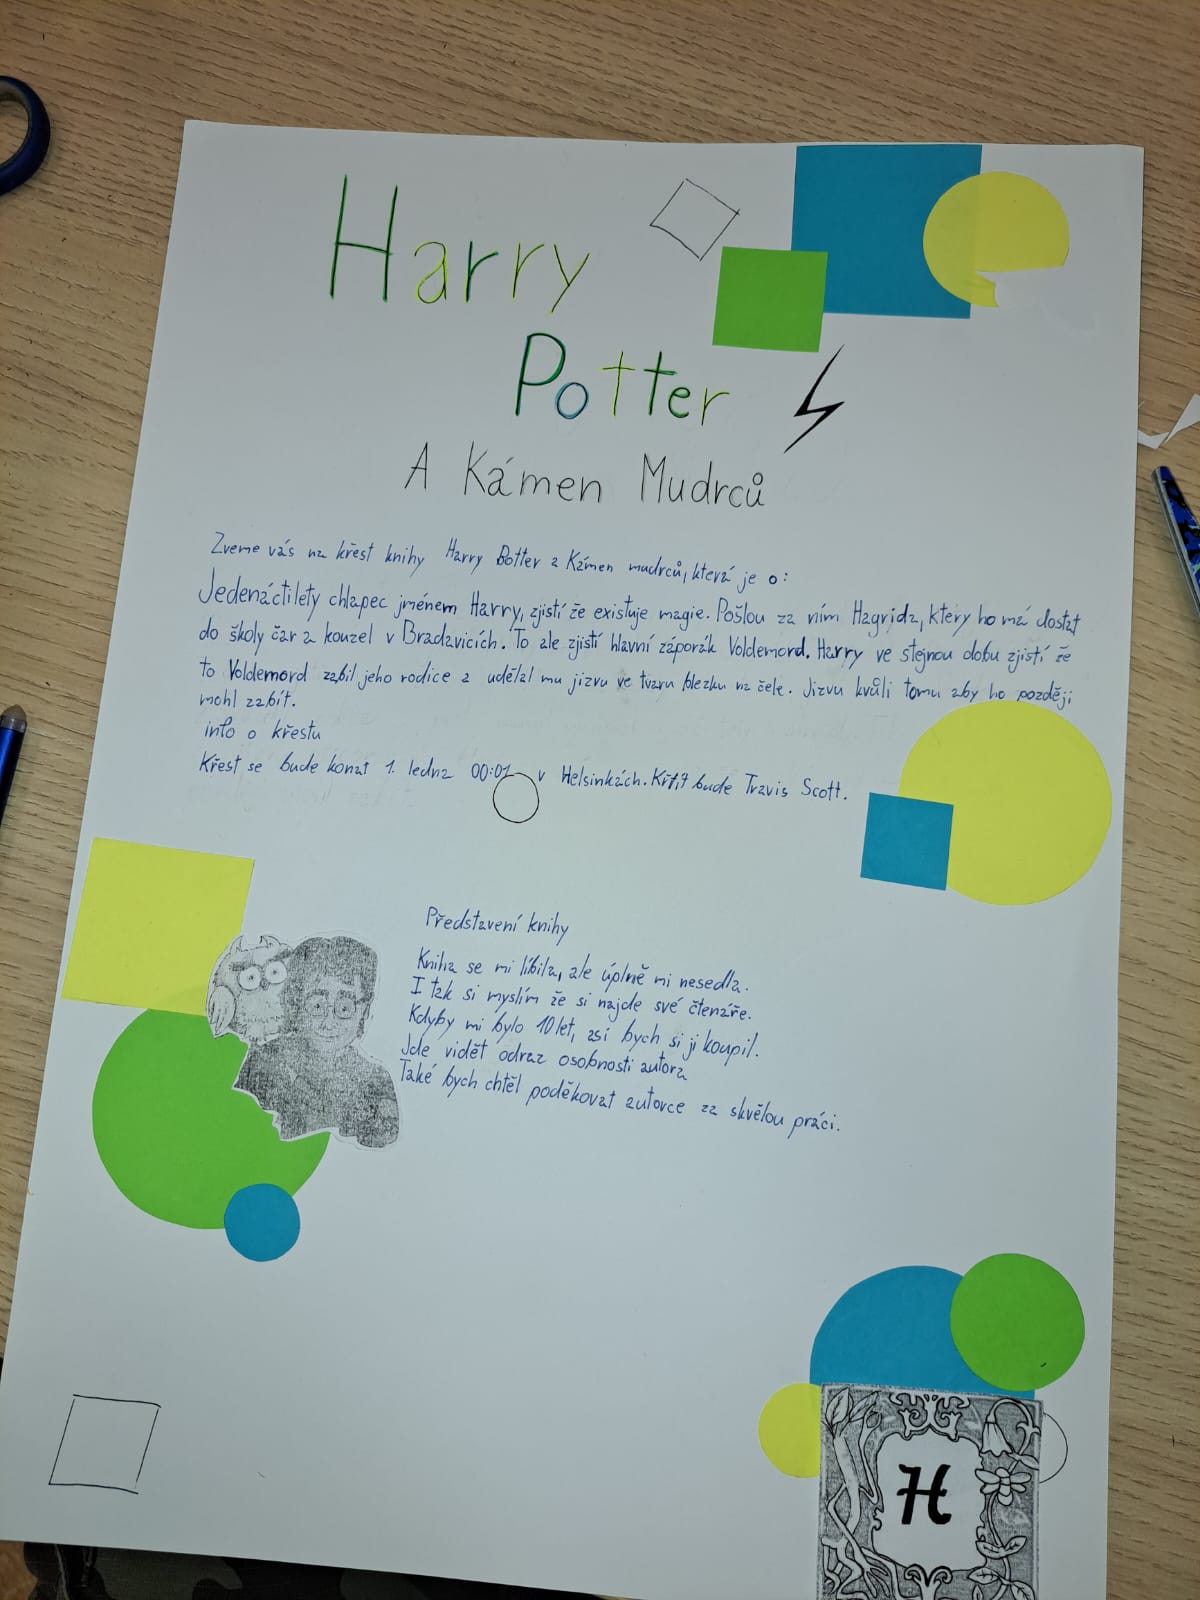 Harry
Potter
A Kámen Mudrců
Zveme vás na křest knihy Harry Botter a Kámen mudrců, která je o:
Jedenáctilety chlapec jménem Harry, zjistí že existuje magie. Pošlou za ním Hagrida, ktery ho má dostat
do školy čar a kouzel v Bradavicích. To ale zjistí hlavní záporák Voldemord. Harry ve stejnou dobu zjistí že
to Voldemord zabil jeho rodice a udělal mu jizvu ve tvaru blezku na čele. Jizvu kvůli tomu aby ho později
mohl zabít.
info o křestu
Křest se bude konat 1. ledna 00:01 v Helsinkách. Křtít bude Travis Scott.
Představení knihy
Kniha se mi líbila, ale úplně mi nesedla.
I tak si myslím že si najde své čtenáře.
Kdyby mi bylo 10 let, asi bych si ji koupil.
Jde vidět odraz osobnosti autora
Také bych chtěl poděkovat autorce za skvělou práci.
H